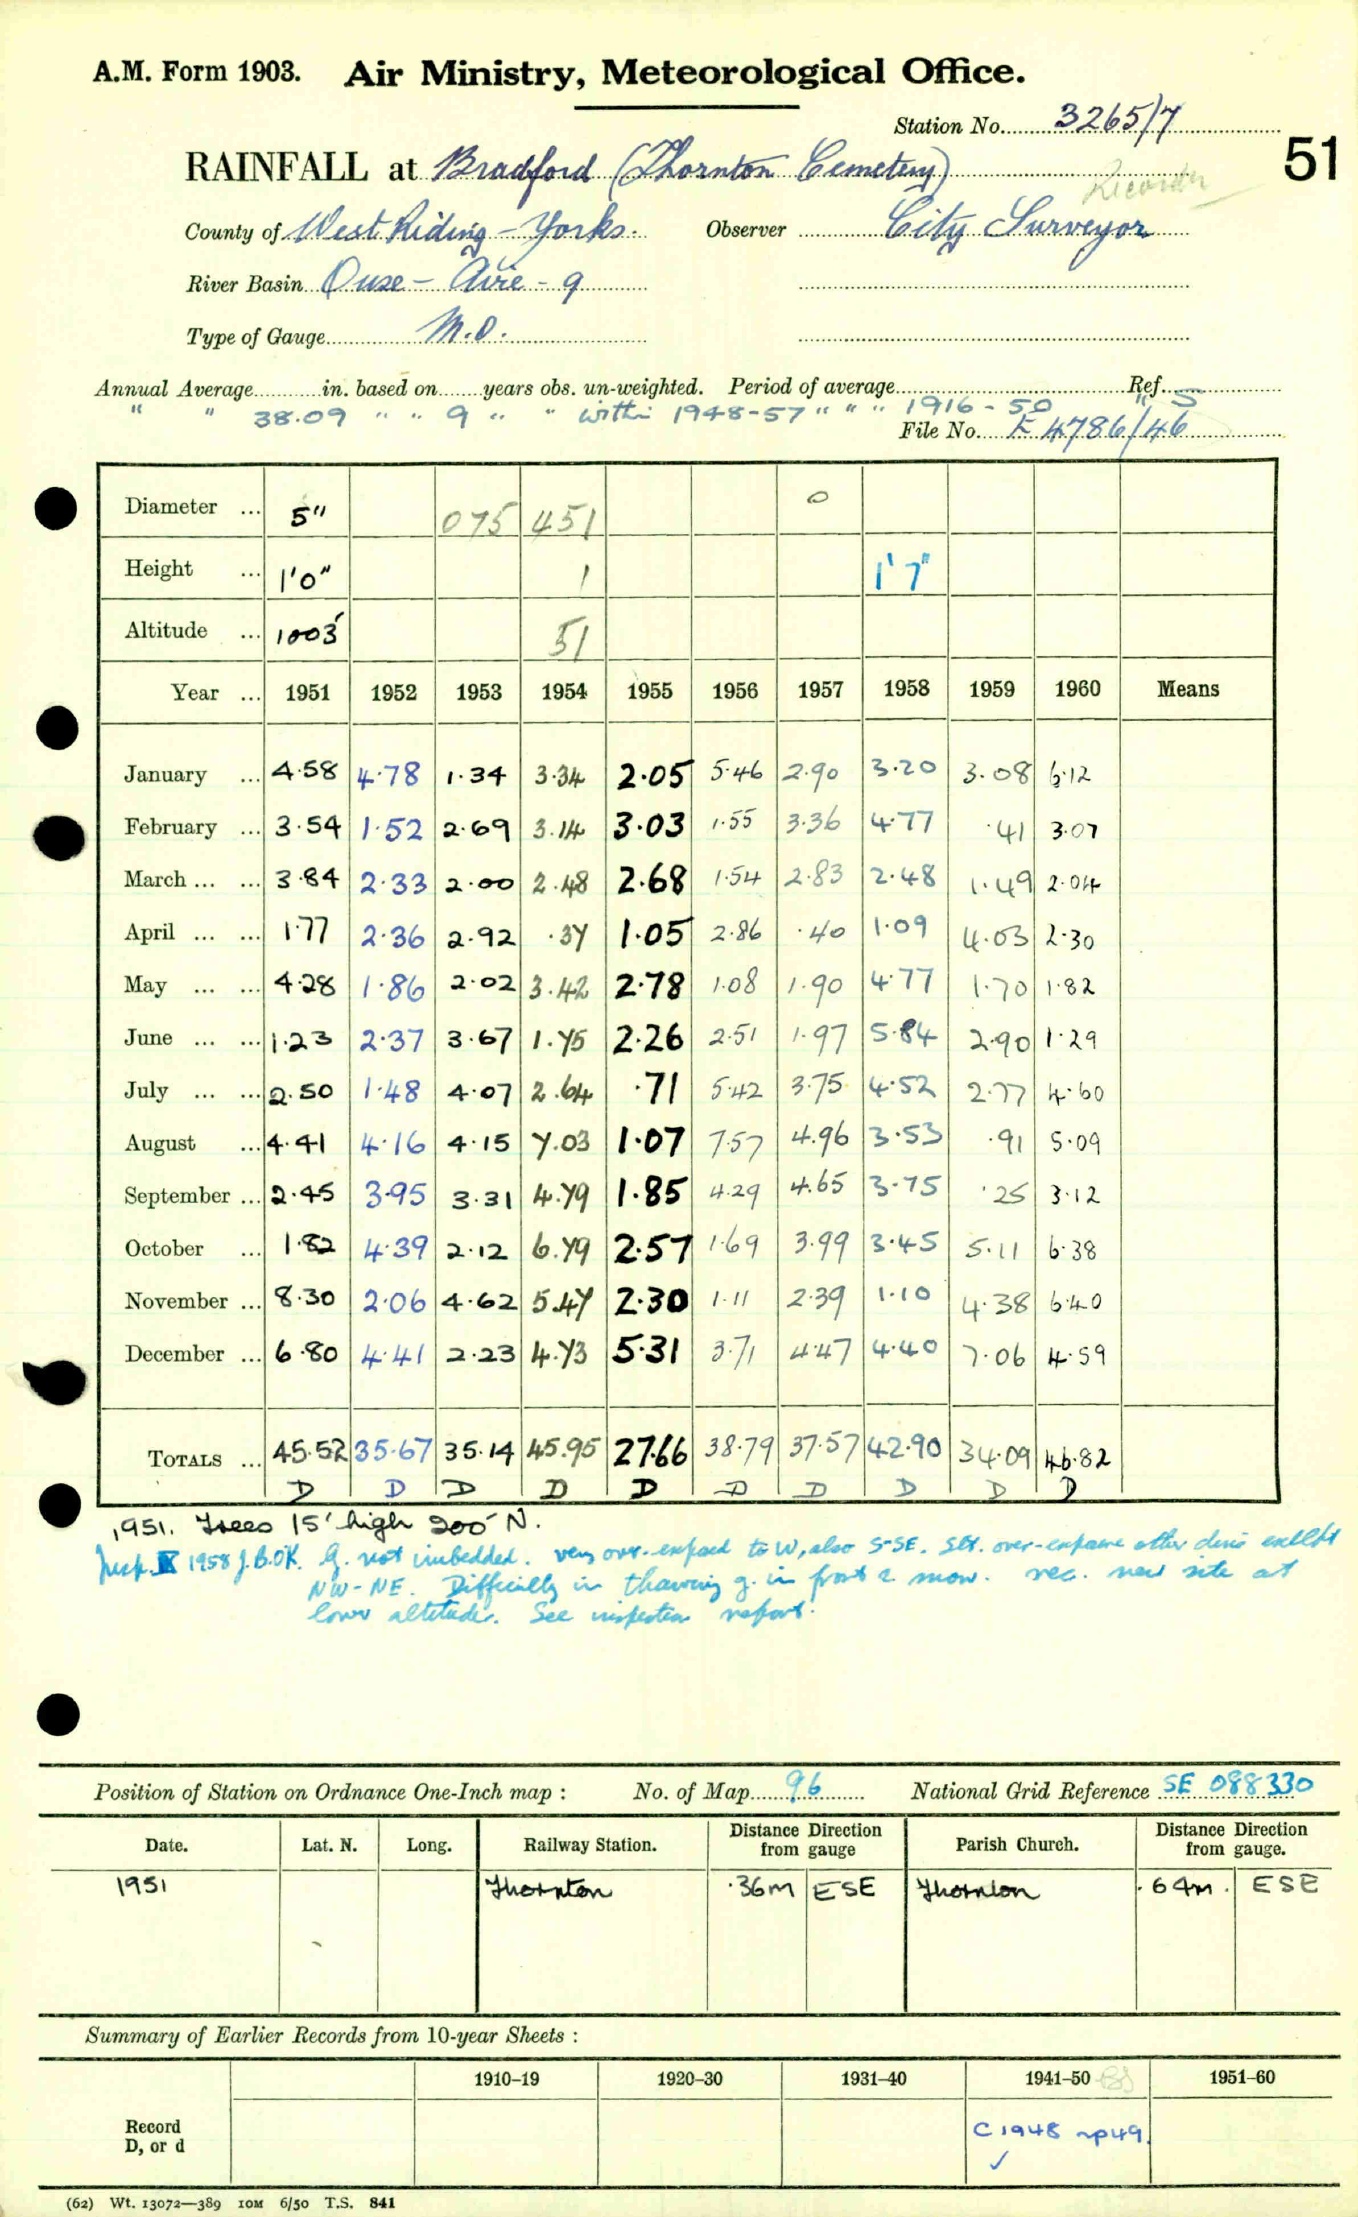 A.M. Form 1903. Air Ministry, Meteorological Office.
Station No. 3265/7
51
RAINFALL at Bradford (Thornton Cemetery)
Recorder
County of West Riding - Yorks. Observer City Surveyor
River Basin Ouse - Aire - 9
Type of Gauge M.O.
Annual Average in. based on years obs. un-weighted. Period of average Ref.
" " 38.09 " " 9 " " within 1948-57 " " " 1916-50 " 5
File No. E 4786/46
Diameter ... 5" 075 451 0
Height ... 1'0" 1 1'7"
Altitude ... 1003' 51
Year ... 1951 1952 1953 1954 1955 1956 1957 1958 1959 1960 Means
January ... 4.58 4.78 1.34 3.34 2.05 5.46 2.90 3.20 3.08 6.12
February ... 3.54 1.52 2.69 3.14 3.03 1.55 3.36 4.77 .41 3.07
March ... ... 3.84 2.33 2.00 2.48 2.68 1.54 2.83 2.48 1.49 2.04
April ... ... 1.77 2.36 2.92 .37 1.05 2.86 .40 1.09 4.03 2.30
May ... ... 4.28 1.86 2.02 3.42 2.78 1.08 1.90 4.77 1.70 1.82
June ... ... 1.23 2.37 3.67 1.75 2.26 2.51 1.97 5.84 2.90 1.29
July ... ... 2.50 1.48 4.07 2.64 .71 5.42 3.75 4.52 2.77 4.60
August ... 4.41 4.16 4.15 7.03 1.07 7.57 4.96 3.53 .91 5.09
September ... 2.45 3.95 3.31 4.79 1.85 4.29 4.65 3.75 .25 3.12
October ... 1.82 4.39 2.12 6.79 2.57 1.69 3.99 3.45 5.11 6.38
November ... 8.30 2.06 4.62 5.47 2.30 1.11 2.39 1.10 4.38 6.40
December ... 6.80 4.41 2.23 4.73 5.31 3.71 4.47 4.40 7.06 4.59
TOTALS ... 45.52 35.67 35.14 45.95 27.66 38.79 37.57 42.90 34.09 46.82
D D D D D D D D D D
1951. Trees 15' high 200' N.
Insp. X 1958 J.B.OK. G. not imbedded. very over-exposed to W, also S-SE. Slt. over-exposure other dirns except
NW-NE. Difficulty in thawing g. in frost & snow. rec. new site at
lower altitude. See inspection report.
Position of Station on Ordnance One-Inch map : No. of Map 96 National Grid Reference SE 088330
Date. Lat. N. Long. Railway Station. Distance Direction from gauge Parish Church. Distance Direction from gauge.
1951 Thornton .36m ESE Thornton .64m. ESE
Summary of Earlier Records from 10-year Sheets :
1910–19 1920–30 1931–40 1941–50 1951–60
Record
D, or d
C 1948 np49.
✓
(62) Wt. 13072—389 10M 6/50 T.S. 841